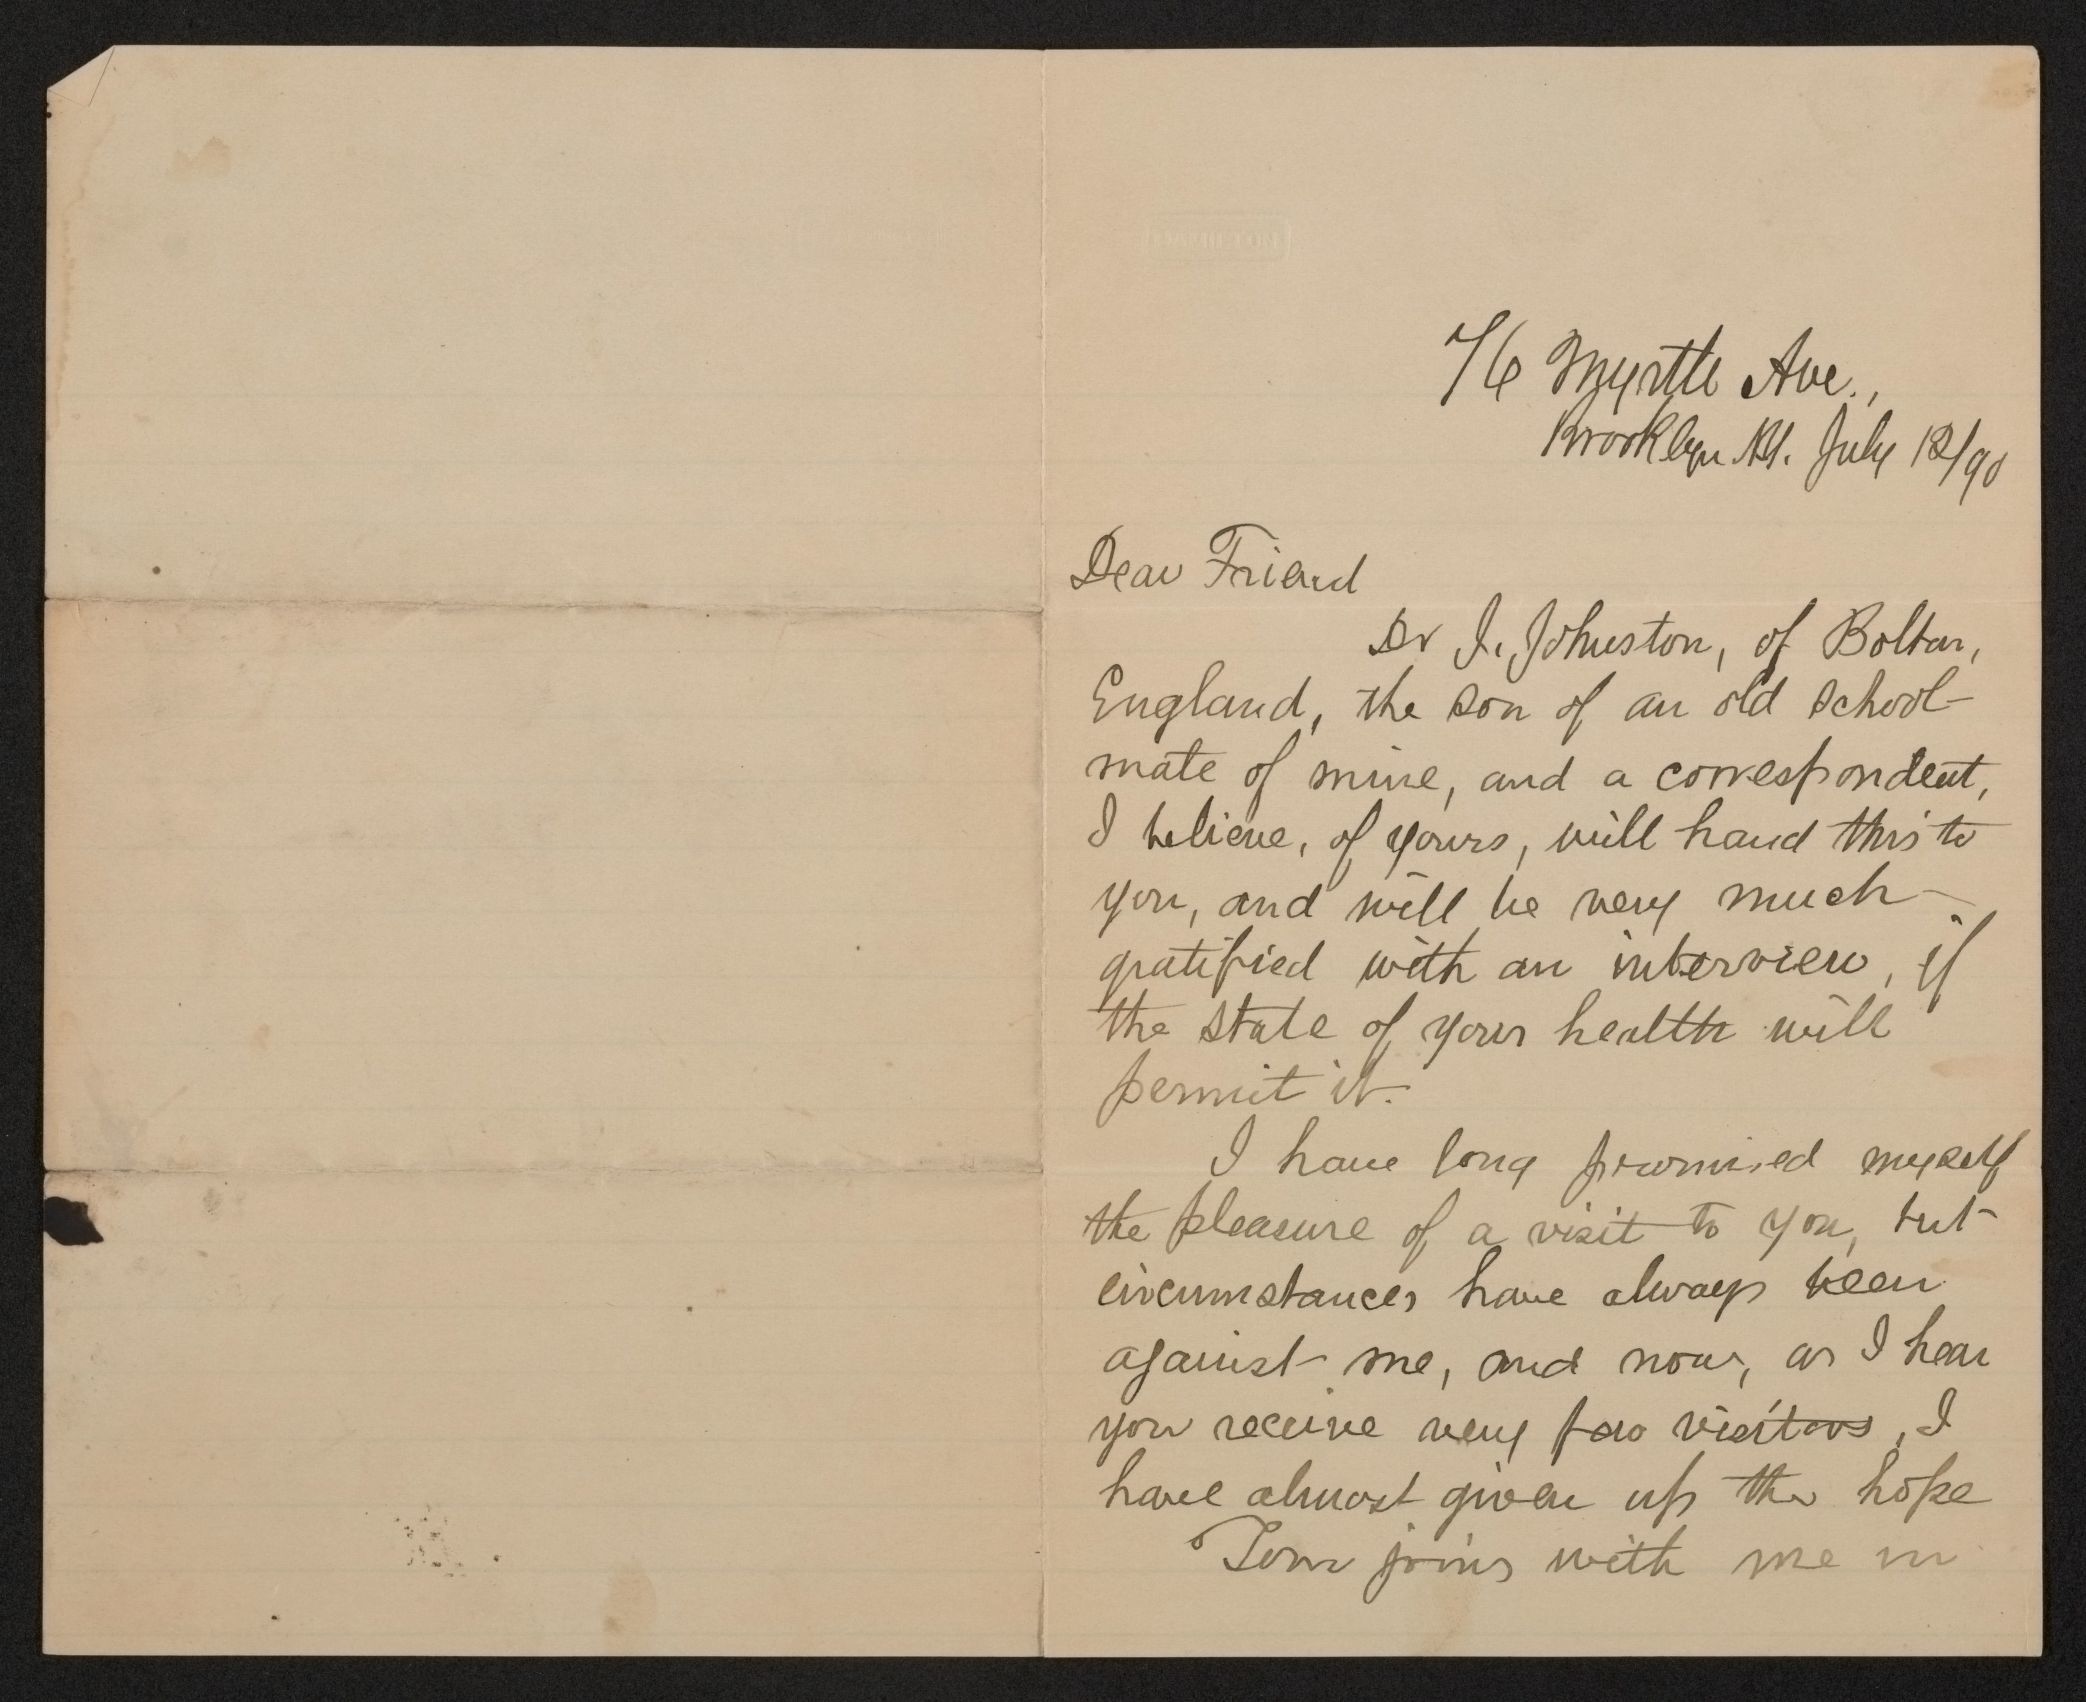 76 Myrtle Ave.,
Brooklyn NY. July 12/90
Dear Friend
Dr J. Johnston, of Bolton,
England, the son of an old school-
mate of mine, and a correspondent,
I believe, of yours, will hand this to
you, and will be very much
gratified with an interview, if
the state of your health will
permit it.
I have long promised myself
the pleasure of a visit to you, but
circumstances have always been
against me, and now, as I hear
you receive very few visitors, I
have almost given up the hope
Tom joins with me in